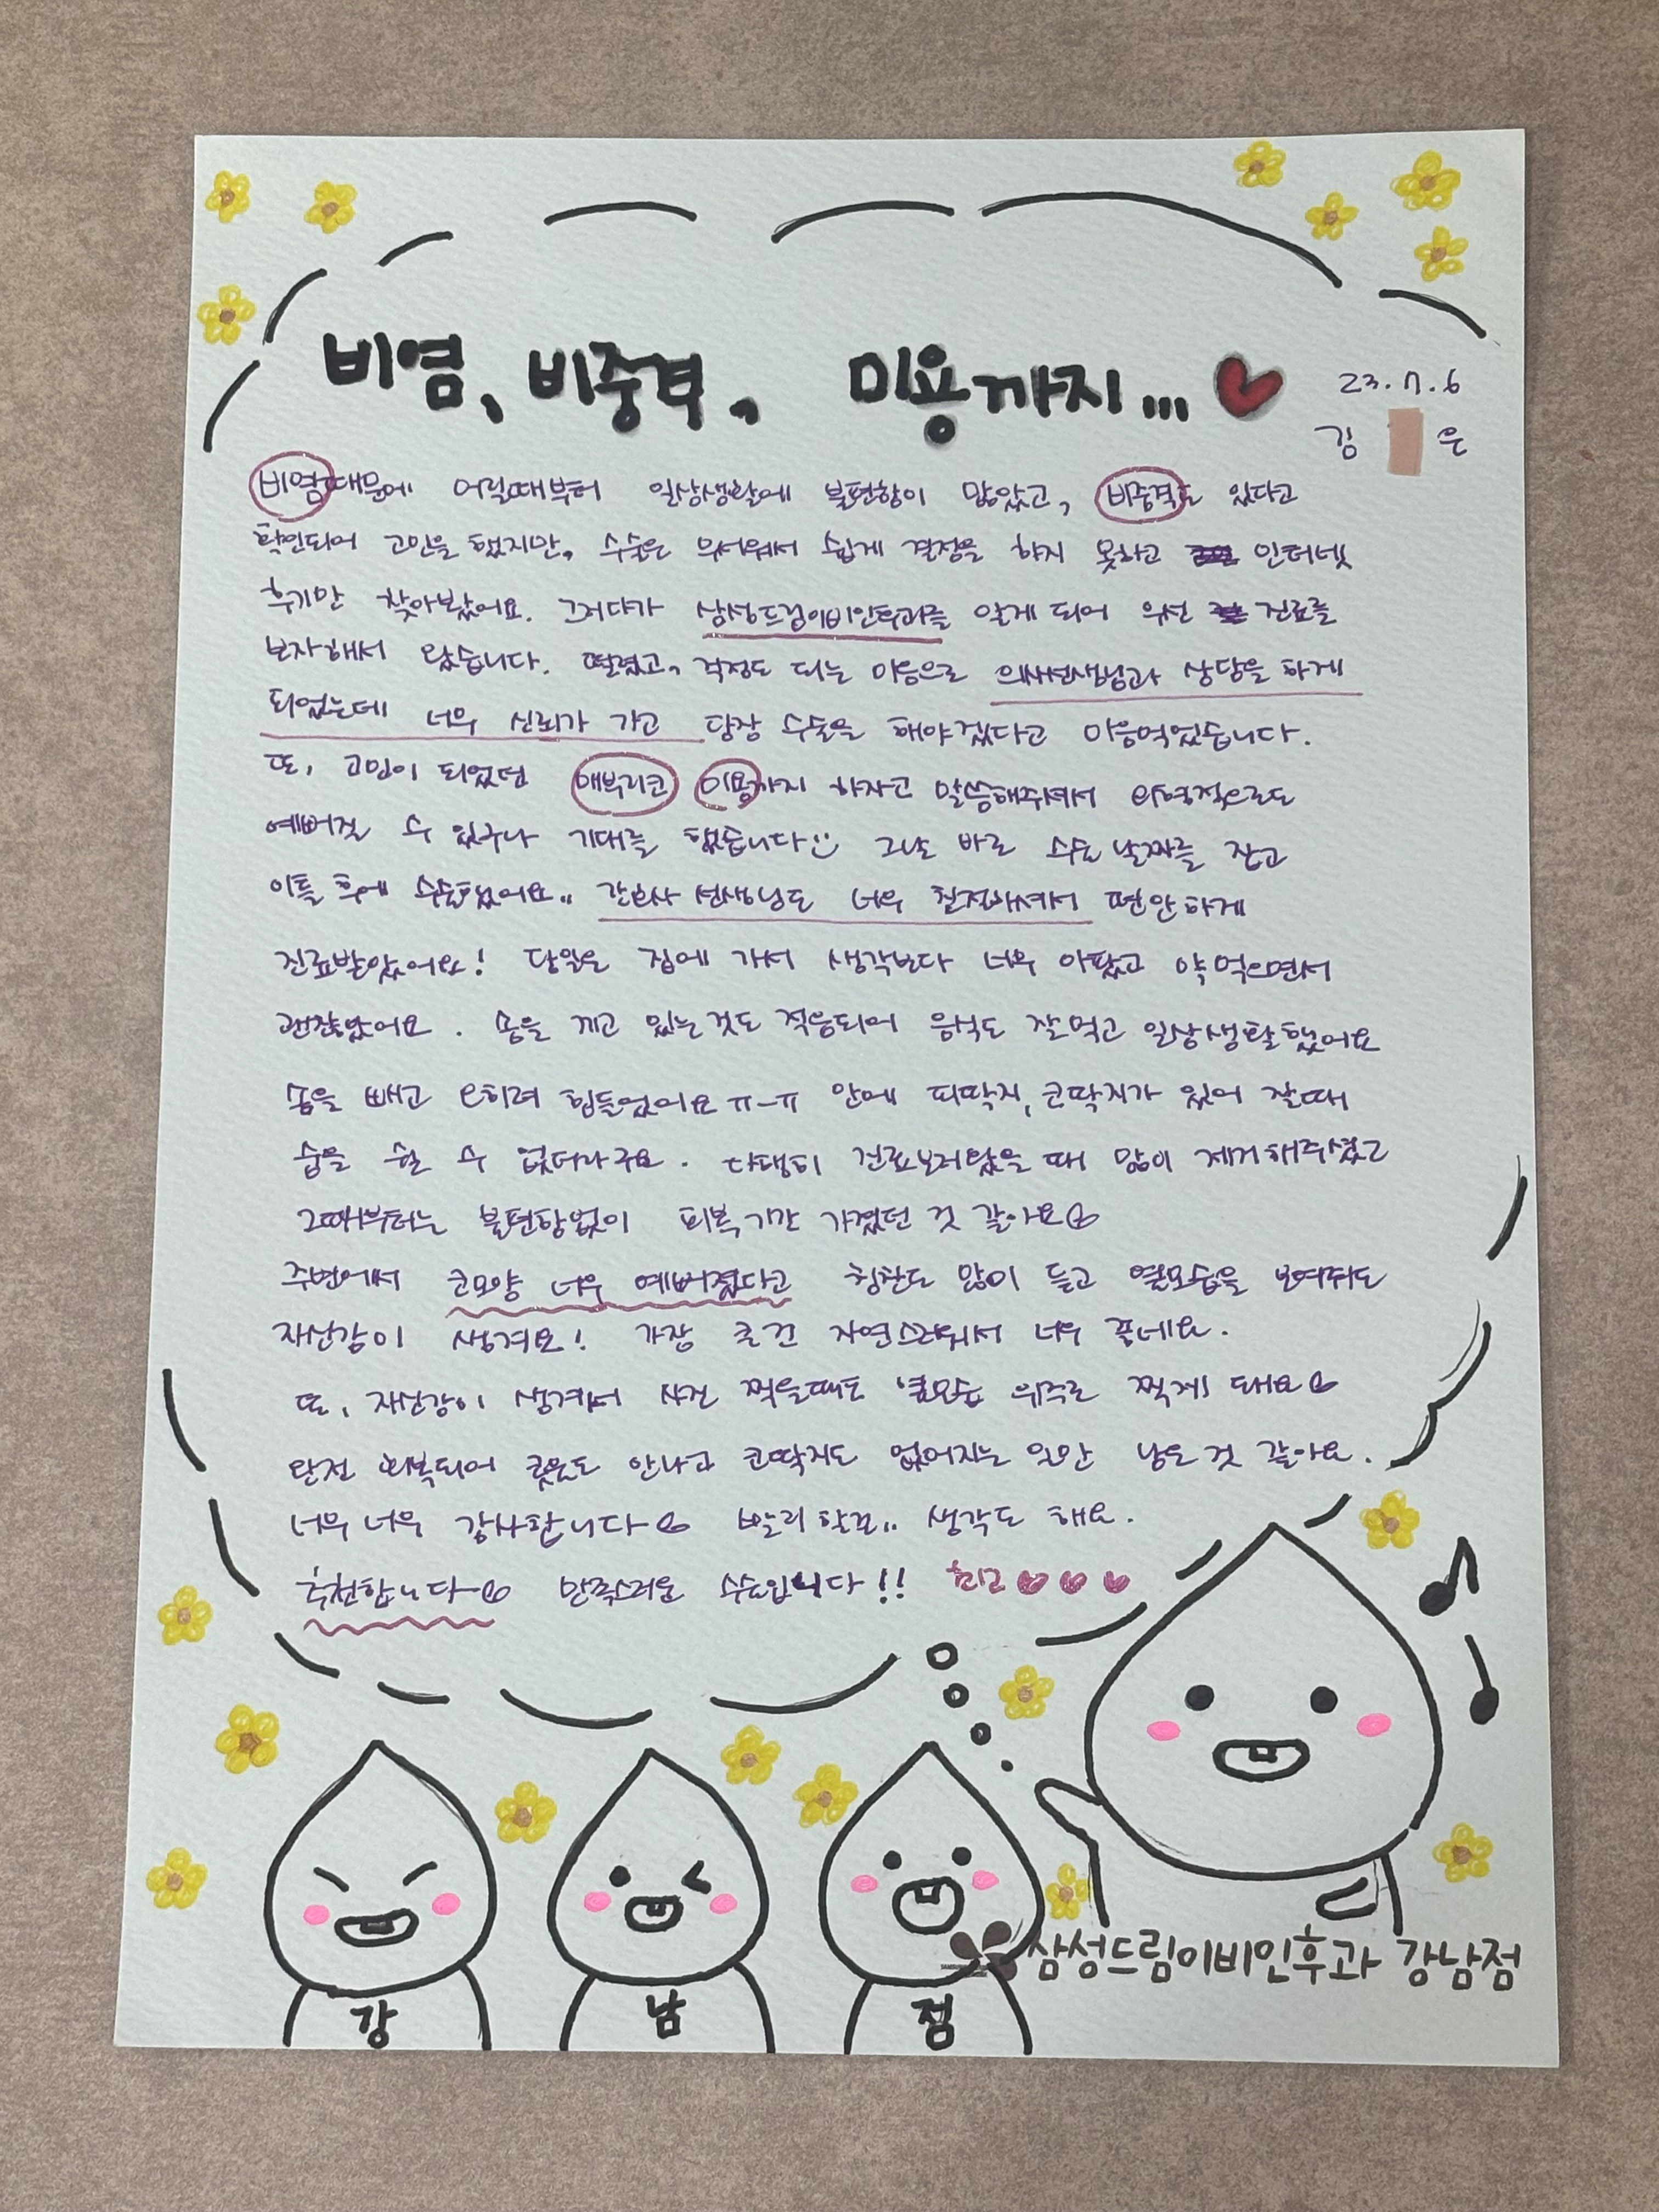 비염, 비중격, 미용까지...
23.7.6
김 은
비염때문에 어릴때부터 일상생활에 불편함이 많았고, 비중격도 있다고
확인되어 고민을 했지만, 수술은 무서워서 쉽게 결정을 하지 못하고 인터넷
후기만 찾아봤어요. 그러다가 삼성드림이비인후과를 알게 되어 우선 진료를
보자해서 왔습니다. 떨렸고, 걱정도 되는 마음으로 의사선생님과 상담을 하게
되었는데 너무 신뢰가 가고 당장 수술을 해야겠다고 마음먹었습니다.
또, 고민이 되었던 매부리코 미용까지 하자고 말씀해주셔서 미용적으로도
예뻐질 수 있구나 기대를 했습니다 그날 바로 수술 날짜를 잡고
이틀 후에 수술했어요.. 간호사 선생님도 너무 친절하셔서 편안하게
진료받았어요! 당일은 집에 가서 생각보다 너무 아팠고 약 먹으면서
괜찮았어요. 솜을 끼고 있는것도 적응되어 음식도 잘먹고 일상생활했어요
솜을 빼고 오히려 힘들었어요ㅠ-ㅠ 안에 피딱지, 코딱지가 있어 잘때
숨을 쉴 수 없더라구요. 다행히 진료보러왔을 때 많이 제거해주셨고
그때부터는 불편함없이 회복기간 가졌던 것 같아요
주변에서 코모양 너무 예뻐졌다고 칭찬도 많이 듣고 옆모습을 보여줘도
자신감이 생겨요! 가장 큰건 자연스러워서 너무 좋네요.
또, 자신감이 생겨서 사진 찍을때도 옆모습 위주로 찍게 돼요
완전 회복되어 콧물도 안나고 코딱지도 없어지는 일만 남은 것 같아요.
너무너무 감사합니다 빨리할걸.. 생각도 해요.
추천합니다 만족스러운 수술입니다!! 최고
강 남 점
삼성드림이비인후과 강남점